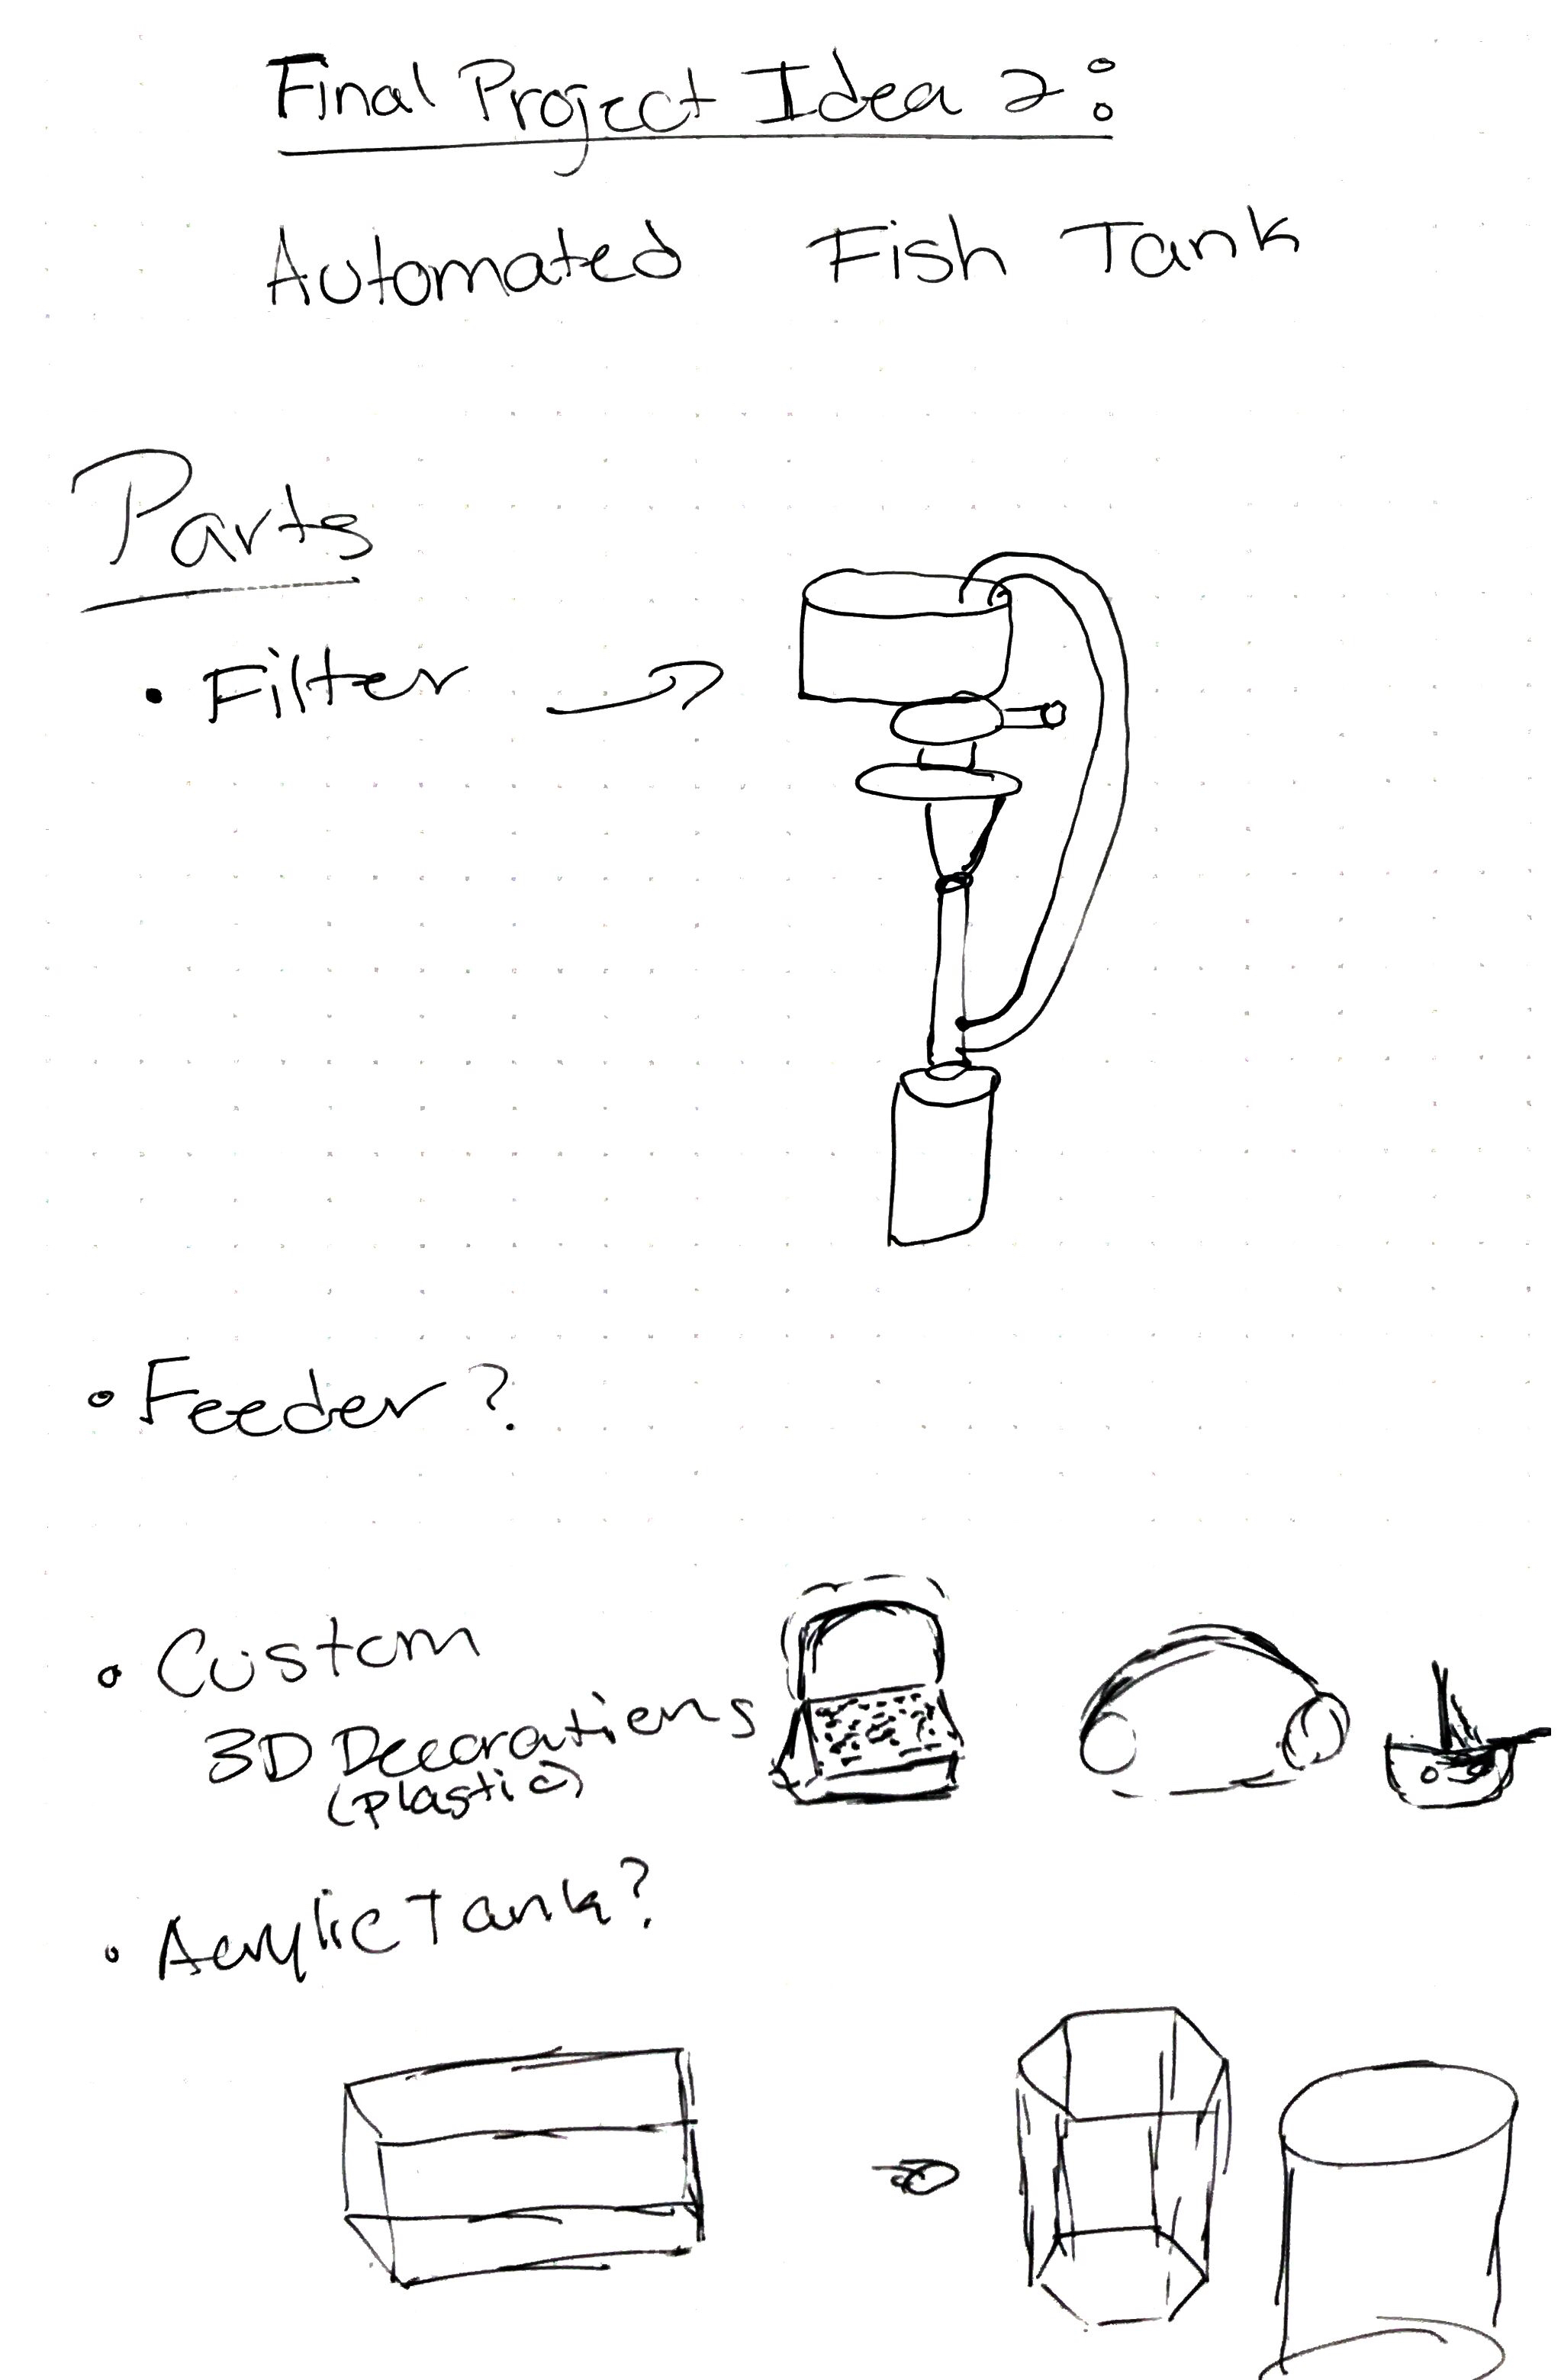 Final Project Idea 2:
Automated Fish Tank
Parts
• Filter
• Feeder?
• Custom
3D Decorations
(plastic)
• Acrylic Tank?